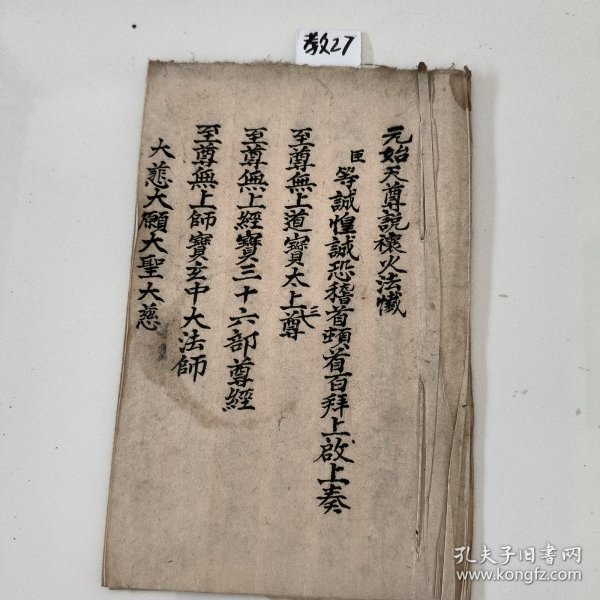 教27
元始天尊說禳火法懺
臣等誠惶誠恐稽首頓首百拜上啟上奏
至尊無上道寶太上三尊
至尊無上經寶三十六部尊經
至尊無上師寶玄中大法師
大慈大願大聖大慈
孔夫子旧书网
www.kongfz.com